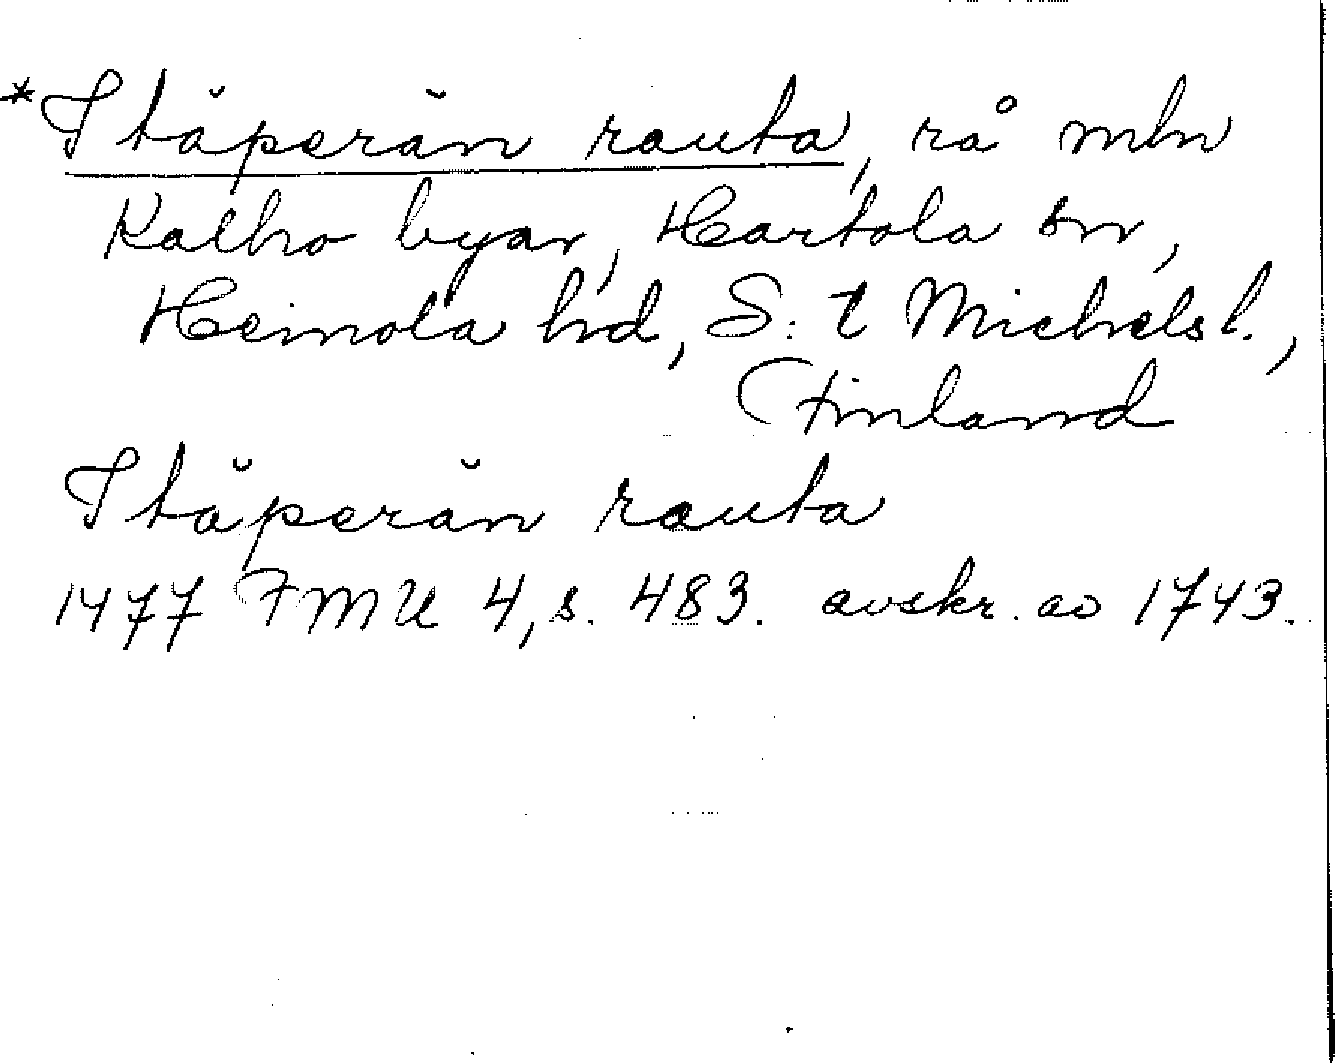 *Itäperän rauta, rå mln
Kalho byar, Hartola sn,
Heinola hd, S:t Michels l.,
Finland
Itäperän rauta
1477 FMU 4, s. 483. avskr. av 1743.